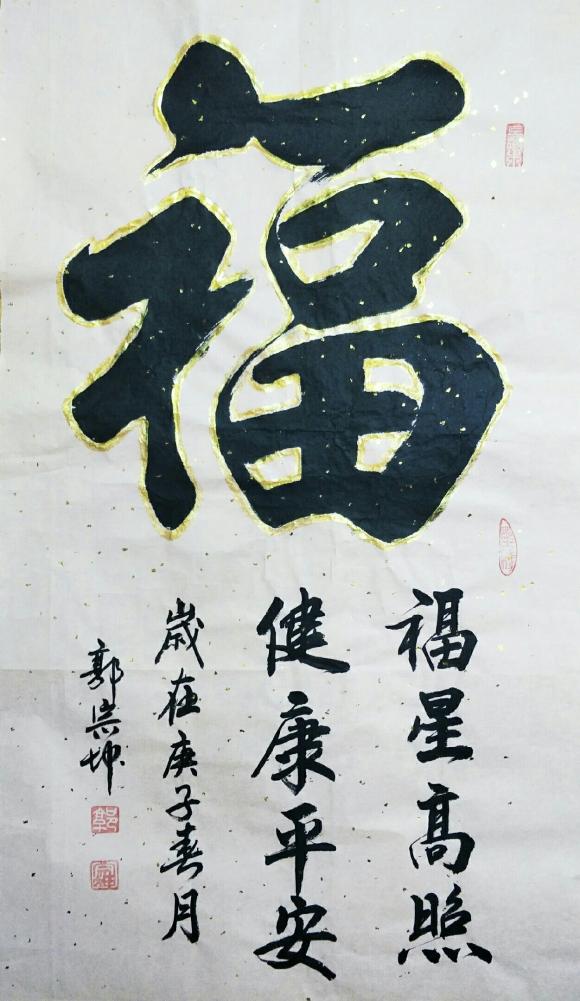 福
福星高照
健康平安
歲在庚子春月
郭宗坤